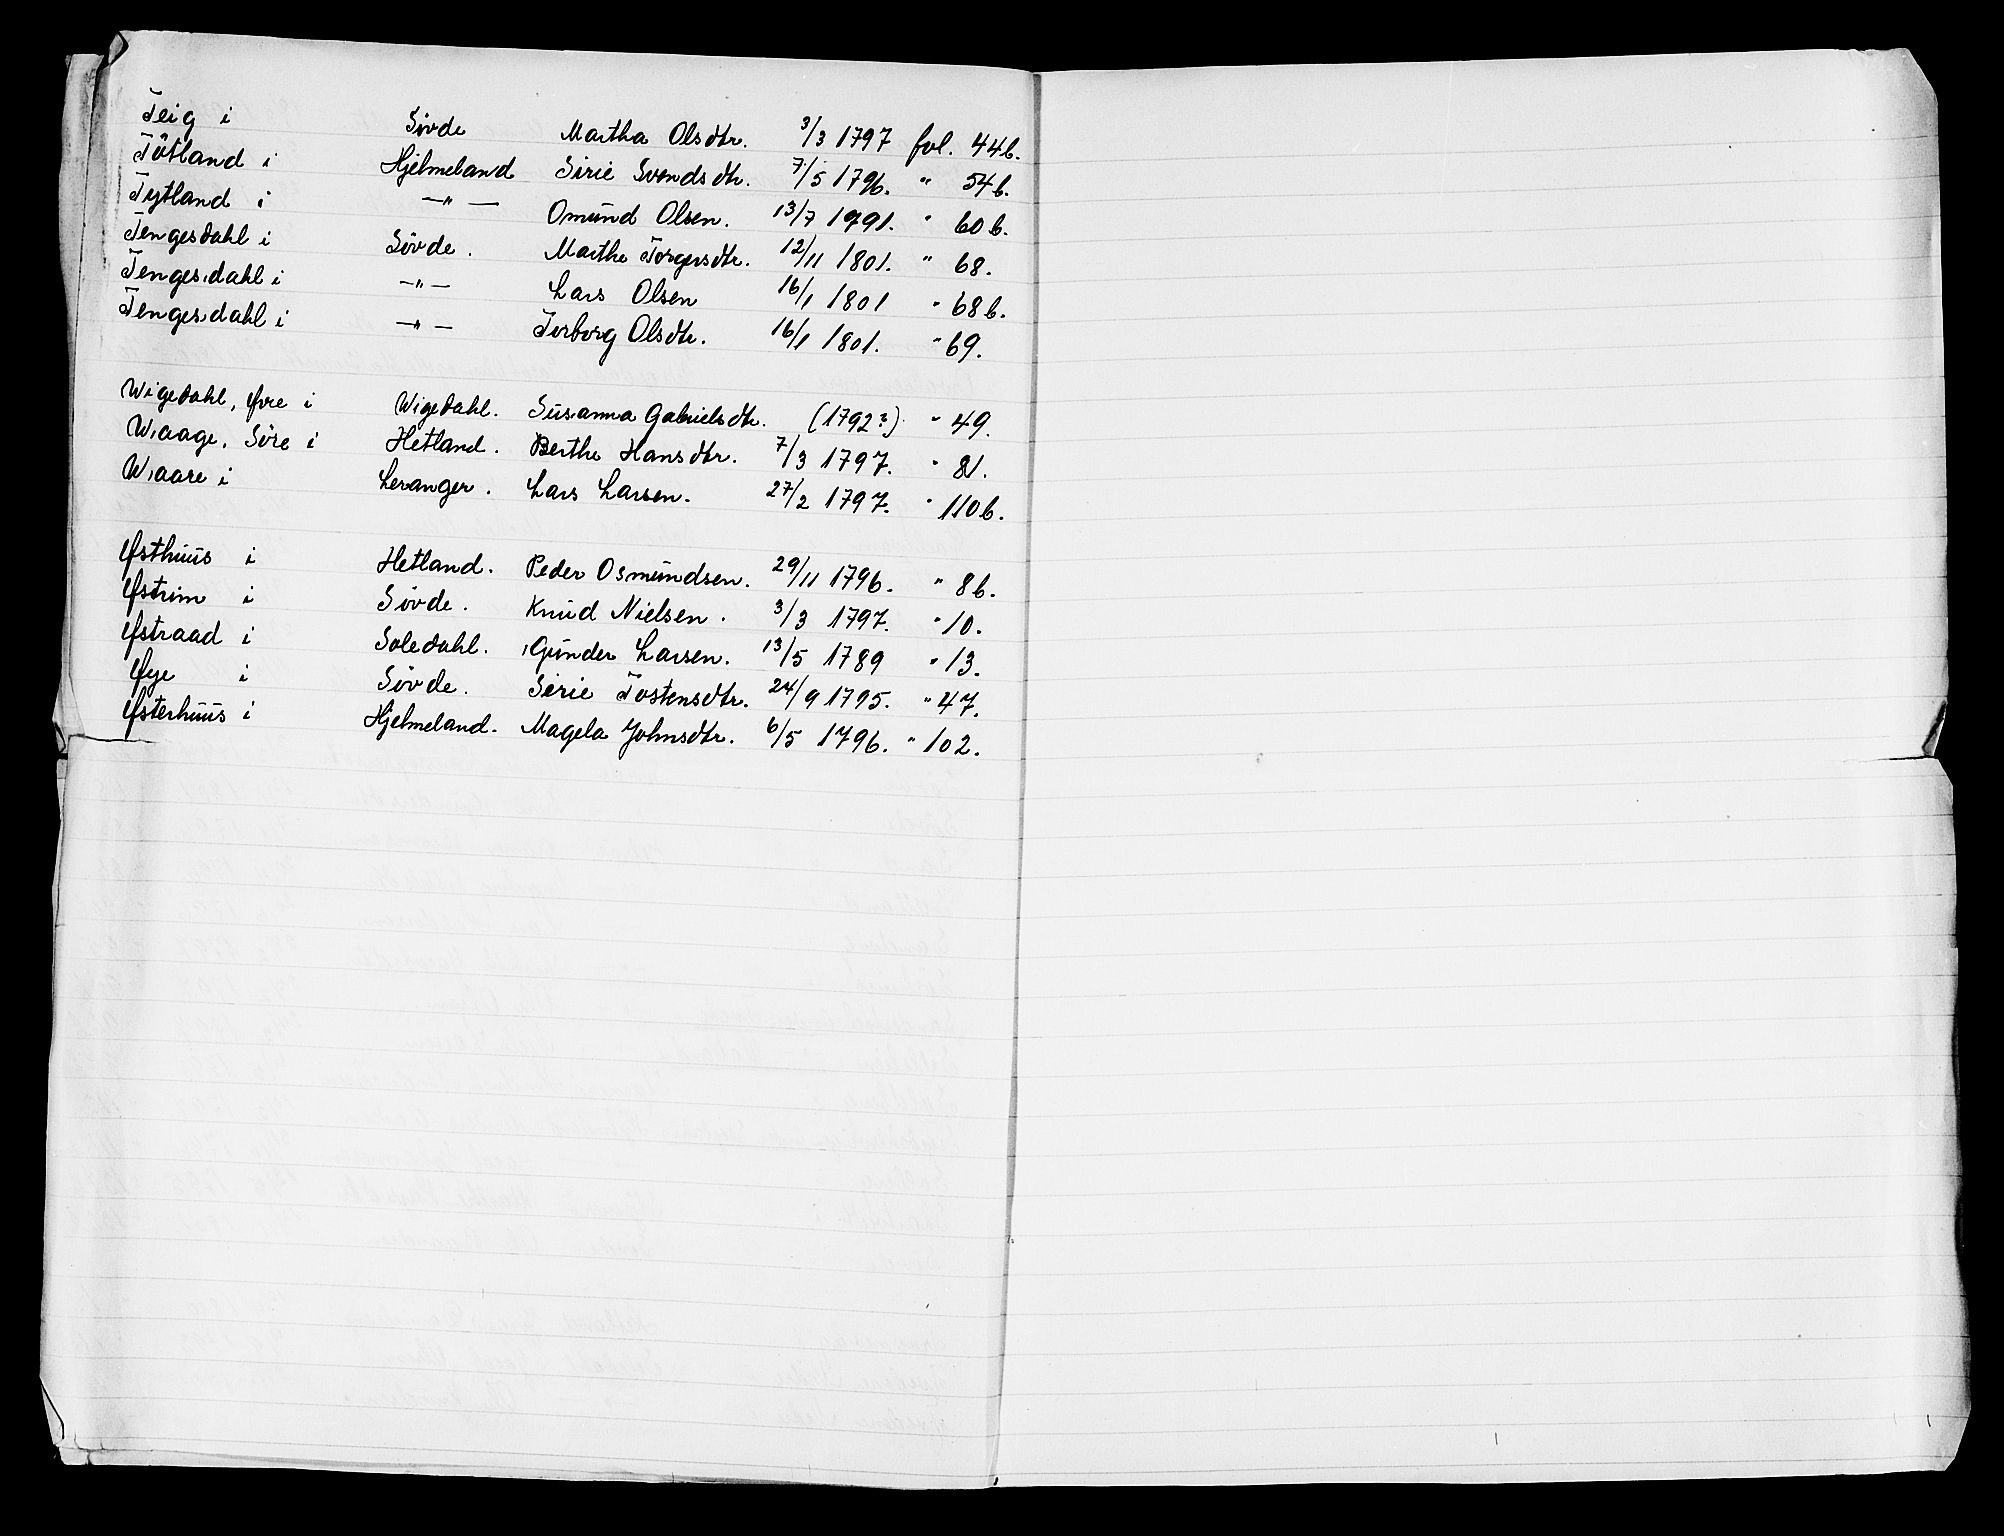 Teig i Søvde Martha Olsdtr. 3/3 1797 fol. 44b.
Tøtland i Hjelmeland Sirie Svendsdtr. 7/5 1796. " 54b.
Tytland i —"— Omund Olsen. 13/7 1791. " 60b.
Tengesdahl i Søvde. Marthe Torgersdtr. 12/11 1801. " 68.
Tengesdahl i —"— Lars Olsen 16/1 1801 " 68b.
Tengesdahl i —"— Torborg Olsdtr. 16/1 1801. " 69.
Wigedahl, Øvre i Wigedahl. Susanna Gabrielsdtr. (1792?) " 49.
Waage, Søre i Hetland. Berthe Hansdtr. 7/3 1797. " 81.
Waare i Leranger. Lars Larsen. 27/2 1797. " 110b.
Østhuus i Hetland. Peder Osmundsen. 29/11 1796. " 8b.
Østrim i Søvde. Knud Nielsen. 3/3 1797. " 10.
Østraad i Soledahl. Gunder Larsen. 13/5 1789 " 13.
Øye i Søvde. Serie Tostensdtr. 24/9 1795. " 47.
Østerhuus i Hjelmeland. Magela Johnsdtr. 6/5 1796. " 102.